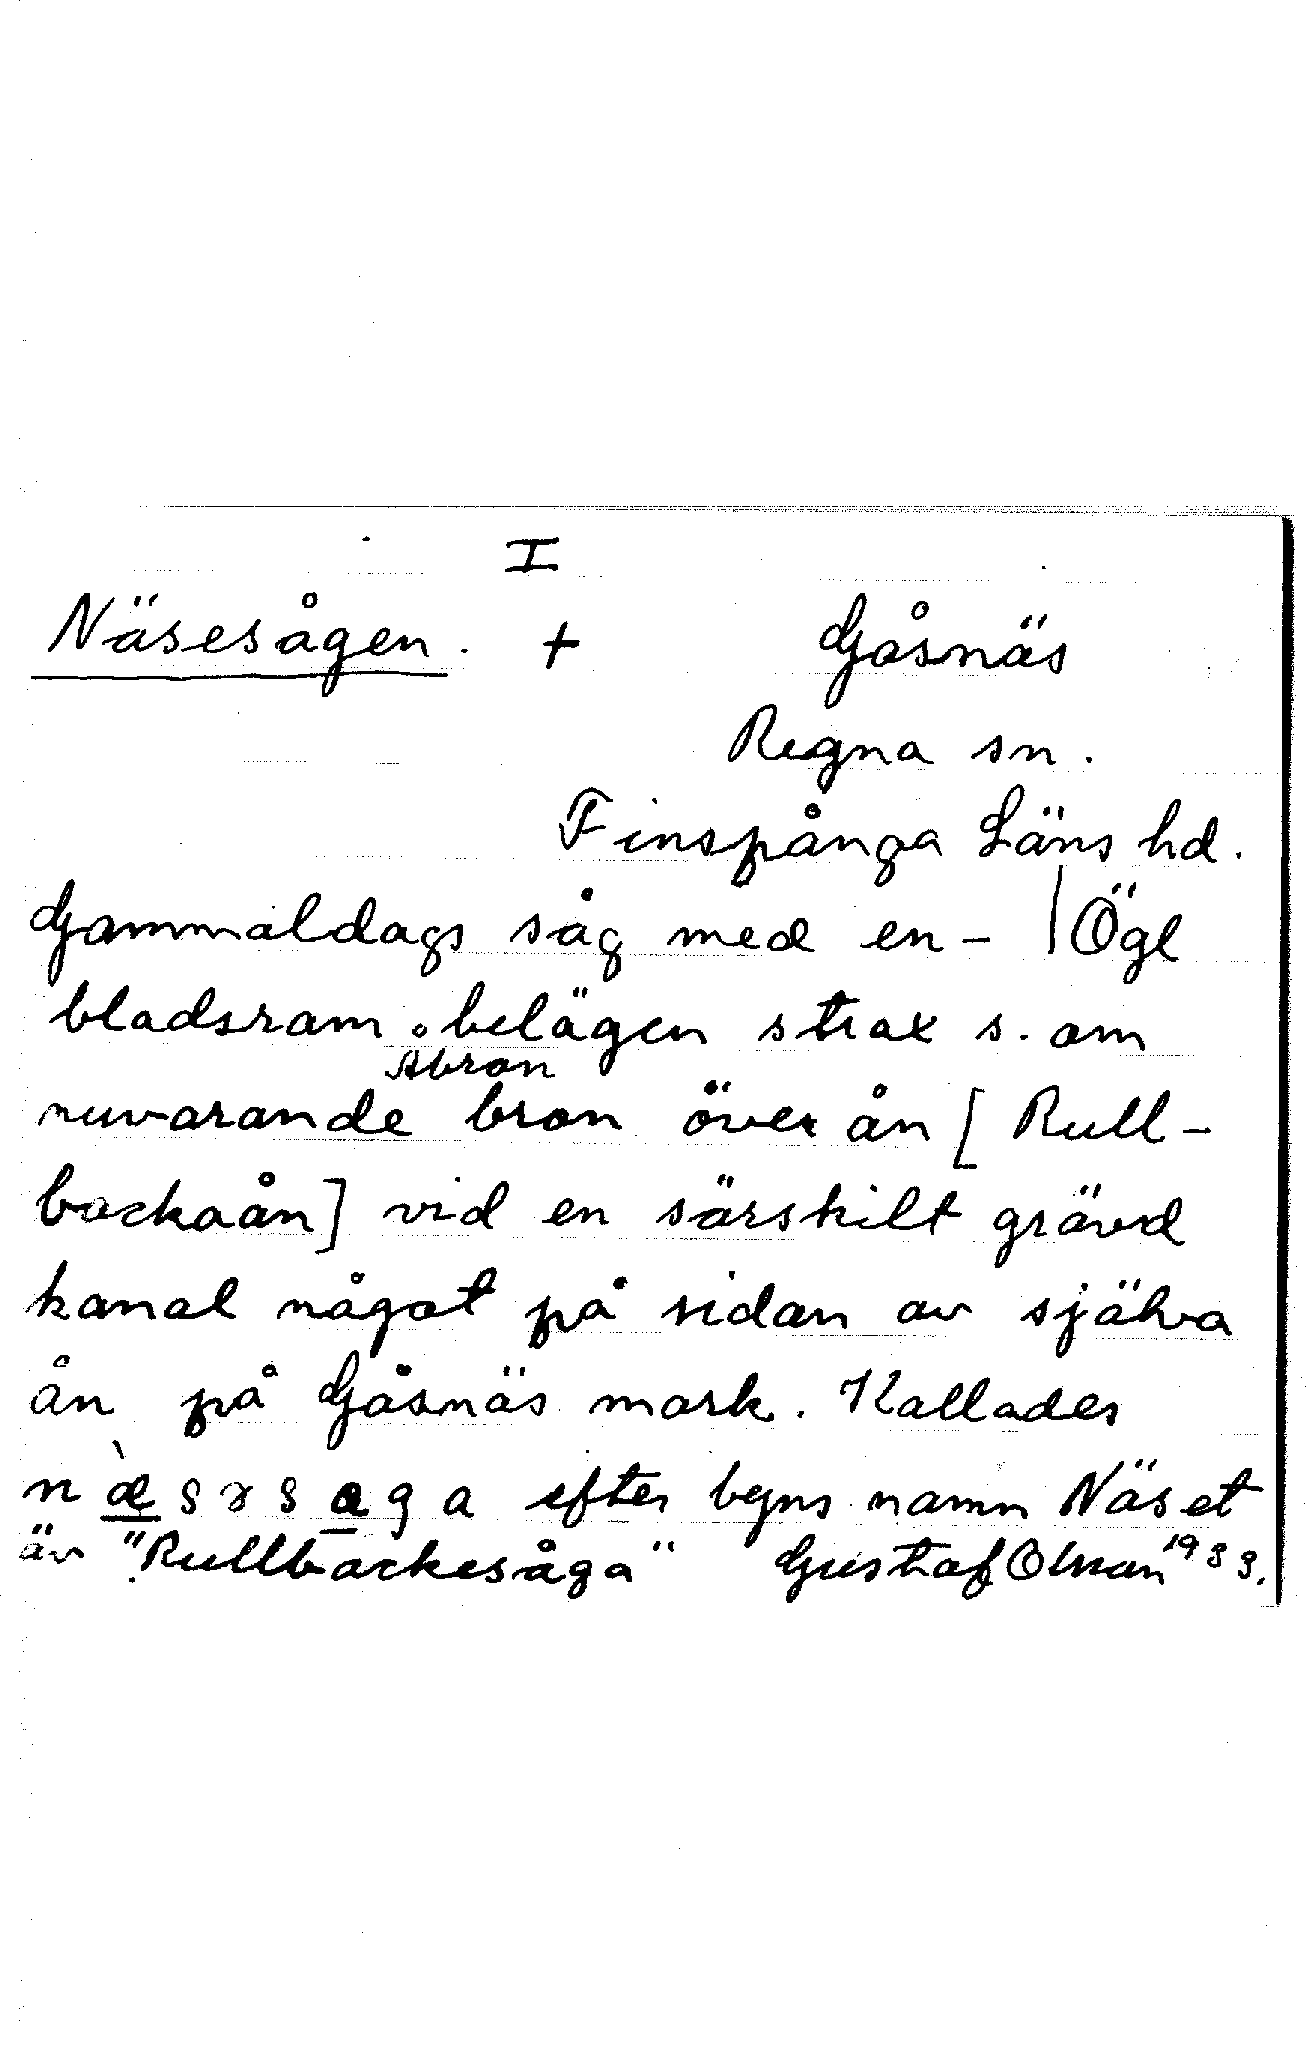 I
Näsesågen. + Gåsnäs
Regna sn.
Finspånga Läns hd.
Gammaldags såg med en- | Ögl
bladsram belägen strax s. om
Åbron
nuvarande bron över ån [Rull-
backaån] vid en särskilt grävd
kanal något på sidan av själva
ån på Gåsnäs mark. Kallades
efter byns namn Näset
äv "Rullbackesåga" Gustaf Olsson 1933.